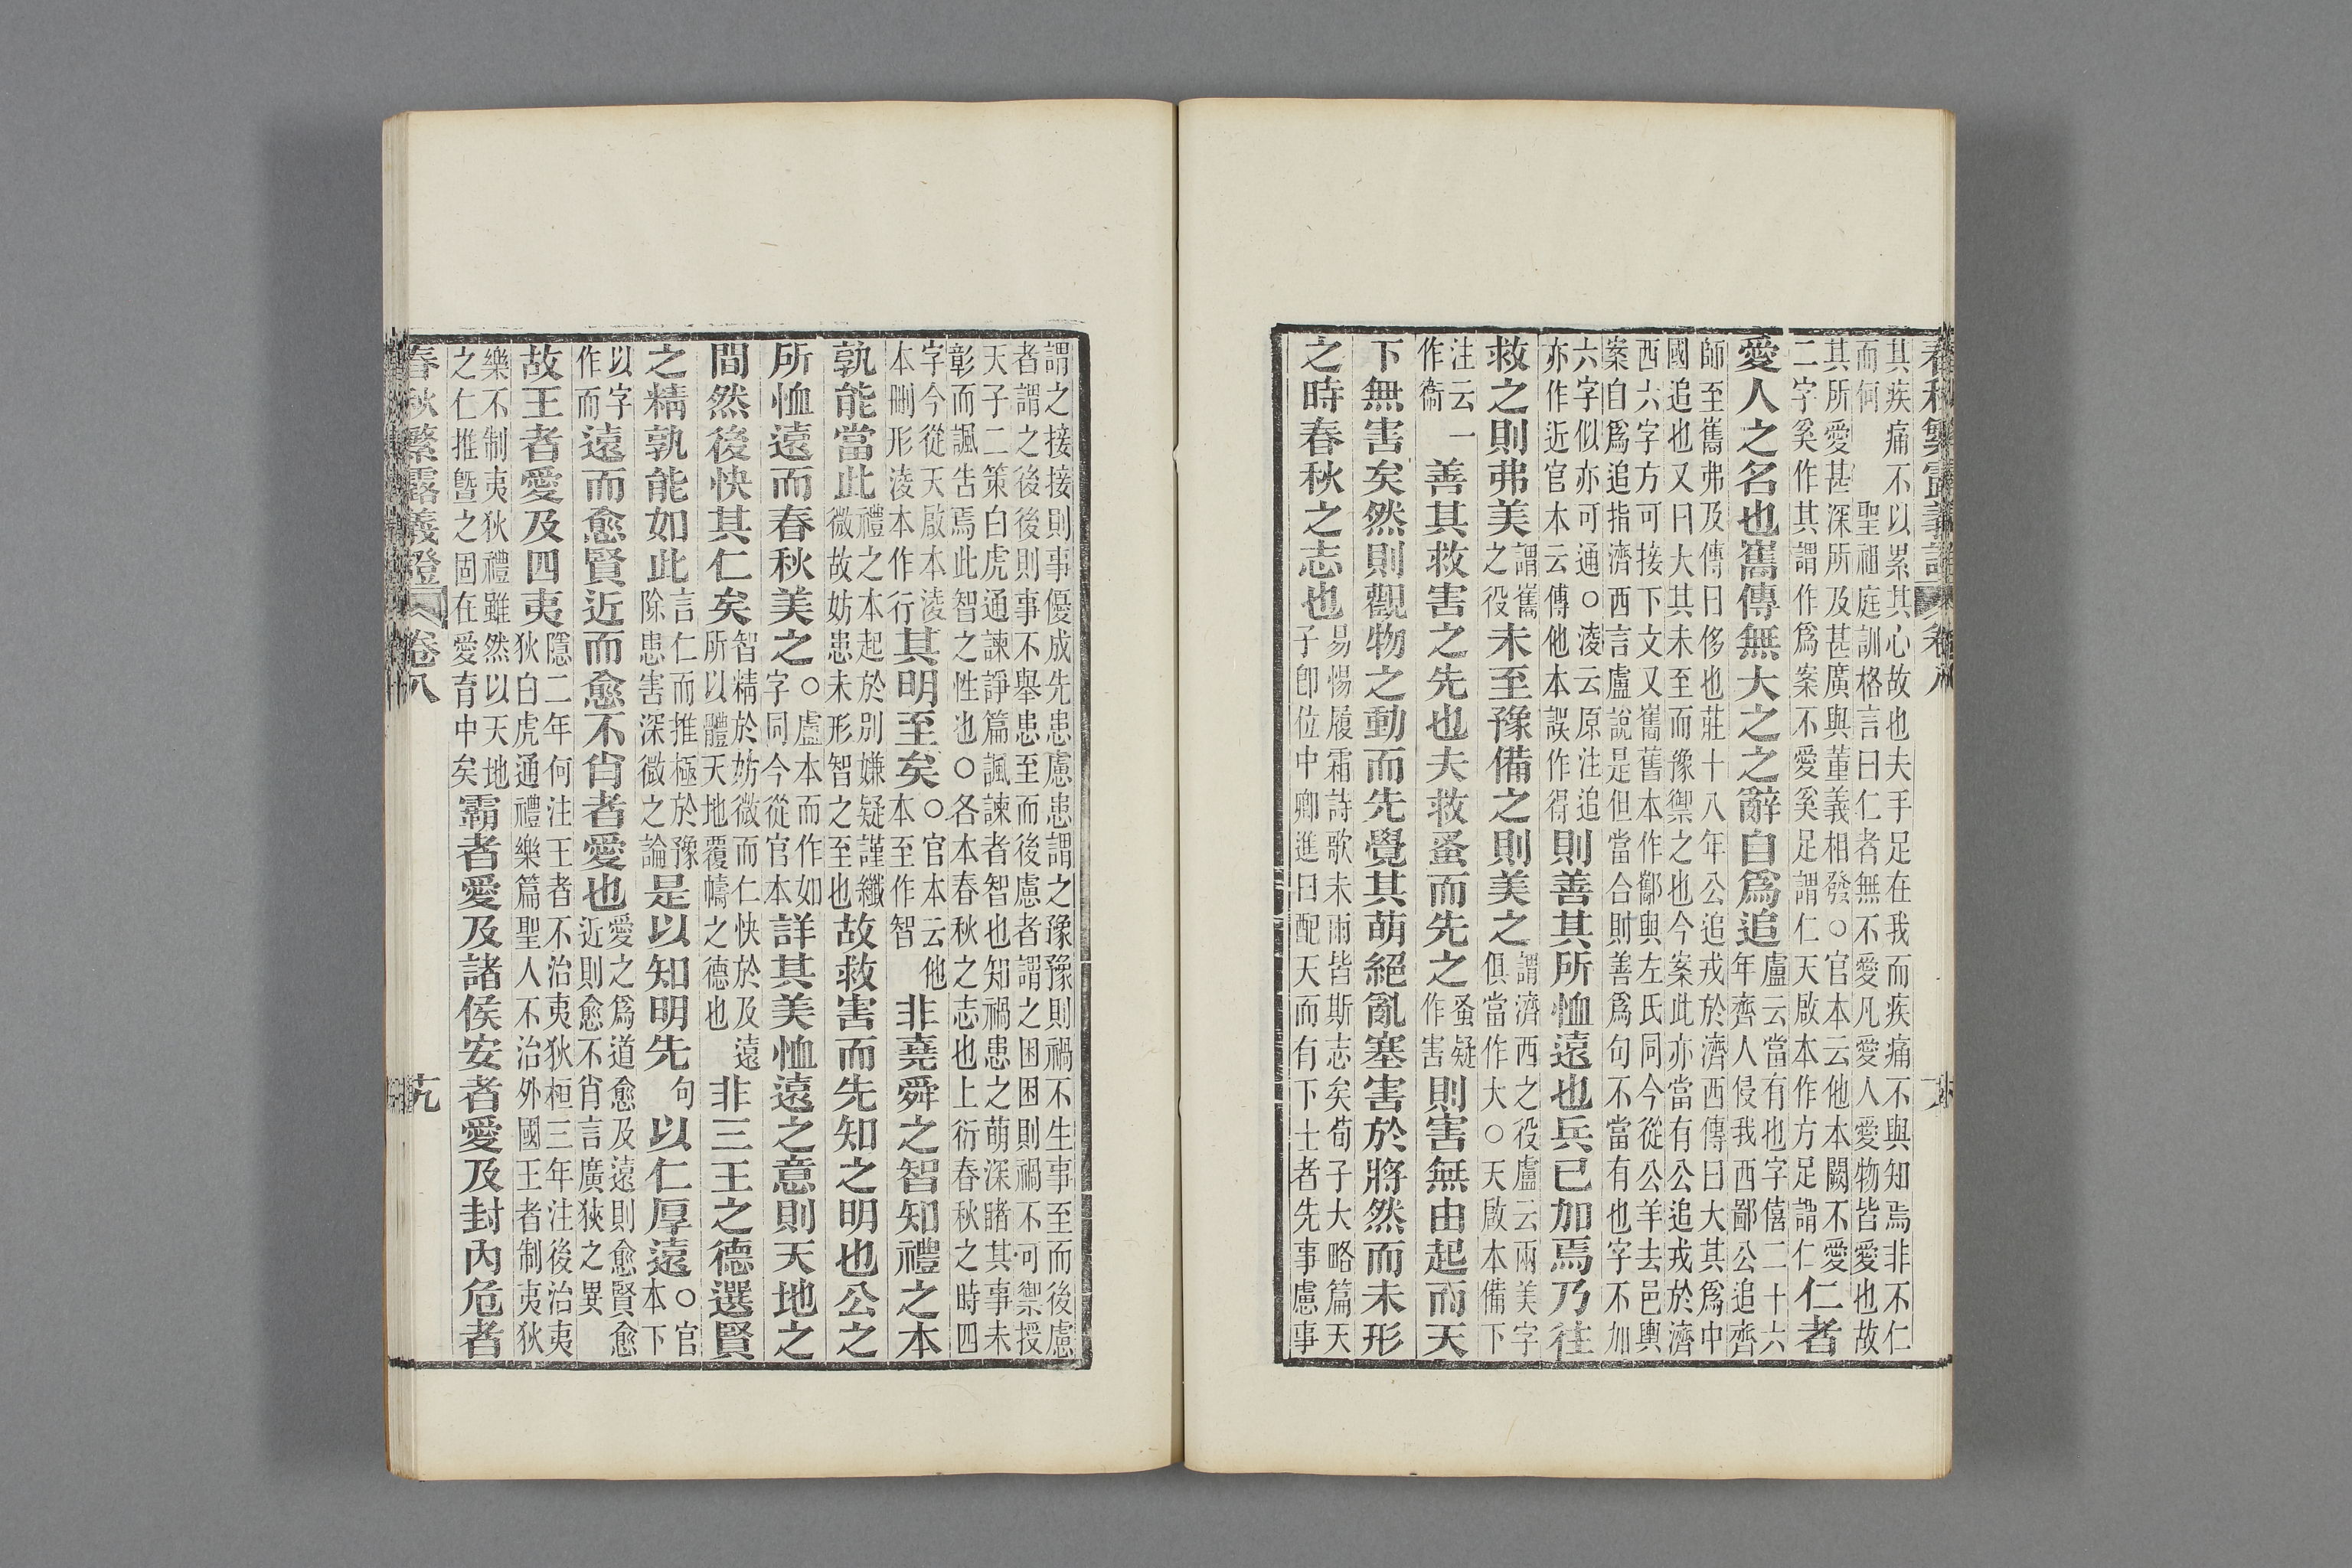 春秋繁露義證 卷八
其疾痛不以累其心故也夫手足在我而疾痛不與知焉非不仁
而何 聖祖庭訓格言曰仁者無不愛凡愛人愛物皆愛也故
其所愛甚深所及甚廣與董義相發○官本云他本闕不愛二字奚作其謂作爲案不愛奚足謂仁天啟本作方足謂仁仁者
愛人之名也巂傳無大之之辭自爲追盧云當有也字僖二十六年齊人侵我西鄙公追齊
師至巂弗及傳曰侈也莊十八年公追戎於濟西傳曰大其爲中
國追也又曰大其未至而豫禦之也今案此亦當有公追戎於濟
西六字方可接下文又巂舊本作酅與左氏同今從公羊去邑輿
案自爲追指濟西言盧說是但當合則善爲句不當有也字不加
六字似亦可通○淩云原注追亦作近官木云傳他本誤作得則善其所恤遠也兵已加焉乃往
救之則弗美謂巂之役未至豫備之則美之謂濟西之役盧云兩美字俱當作大○天啟本備下
注云一作衞善其救害之先也夫救蚤而先之蚤疑作害則害無由起而天
下無害矣然則觀物之動而先覺其萌絕亂塞害於將然而未形
之時春秋之志也易惕履霜詩歌未雨皆斯志矣荀子大略篇天子卽位中卿進曰配天而有下土者先事慮事
謂之接接則事優成先患慮患謂之豫豫則禍不生事至而後慮
者謂之後後則事不舉患至而後慮者謂之困困則禍不可禦授
天子二策白虎通諫諍篇諷諫者智也知禍患之萌深睹其事未
彰而諷告焉此智之性也○各本春秋之志也上衍春秋之時四
字今從天啟本淩本刪形淩本作行其明至矣○官本云他本至作智非堯舜之智知禮之本
孰能當此禮之本起於別嫌疑謹纖微故妨患未形智之至也故救害而先知之明也公之
所恤遠而春秋美之○盧本而作如字同今從官本詳其美恤遠之意則天地之
間然後快其仁矣智精於妨微而仁快於及遠所以體天地覆幬之德也非三王之德選賢
之精孰能如此言仁而推極於豫除患害深微之論是以知明先句以仁厚遠○官本下
以字作而遠而愈賢近而愈不肖者愛也愛之爲道愈及遠則愈賢愈近則愈不肖言廣狹之異
故王者愛及四夷隱二年何注王者不治夷狄桓三年注後治夷狄白虎通禮樂篇聖人不治外國王者制夷狄
樂不制夷狄禮雖然以天地之仁推曁之固在愛育中矣霸者愛及諸侯安者愛及封內危者
春秋繁露義證 卷八 十九